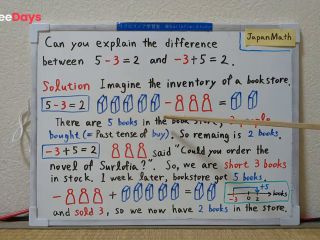 reeDays
JapanMath
Can you explain the difference
between 5-3=2 and -3+5=2.
Solution Imagine the inventory of a bookstore.
5-3=2 - =
There are 5 books in the book store, 3
bought (= Past tense of buy). So remaing is 2 books.
-3+5=2 said "Could you order the
novel of Surlofia?" So, we are short 3 books
in stock. 1 week later, bookstore got 5 books.
- + = +5
-3 0 2 books
and sold 3, so we now have 2 books in the store.